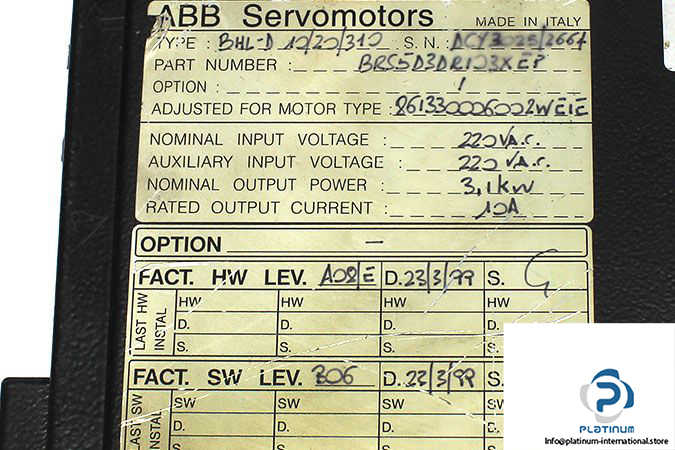 ABB Servomotors MADE IN ITALY
TYPE : BHL-D 10/20/310 S. N.:
PART NUMBER :
OPTION : /
ADJUSTED FOR MOTOR TYPE : 861330006002WE1E
NOMINAL INPUT VOLTAGE : 220 V A.C.
AUXILIARY INPUT VOLTAGE : 220 V A.C.
NOMINAL OUTPUT POWER : 3,1 kW
RATED OUTPUT CURRENT : 10A
OPTION –
FACT. HW LEV. A08/E D. 23/3/99 S.
LAST HW INSTAL
HW HW HW HW
D. D. D. D.
S. S. S. S.
FACT. SW LEV. 306 D. 23/3/99 S.
LAST SW INSTAL
SW SW SW
D. D. D.
S. S. S.
P
PLATINUM
INTERNATIONAL
info@platinum-international.store